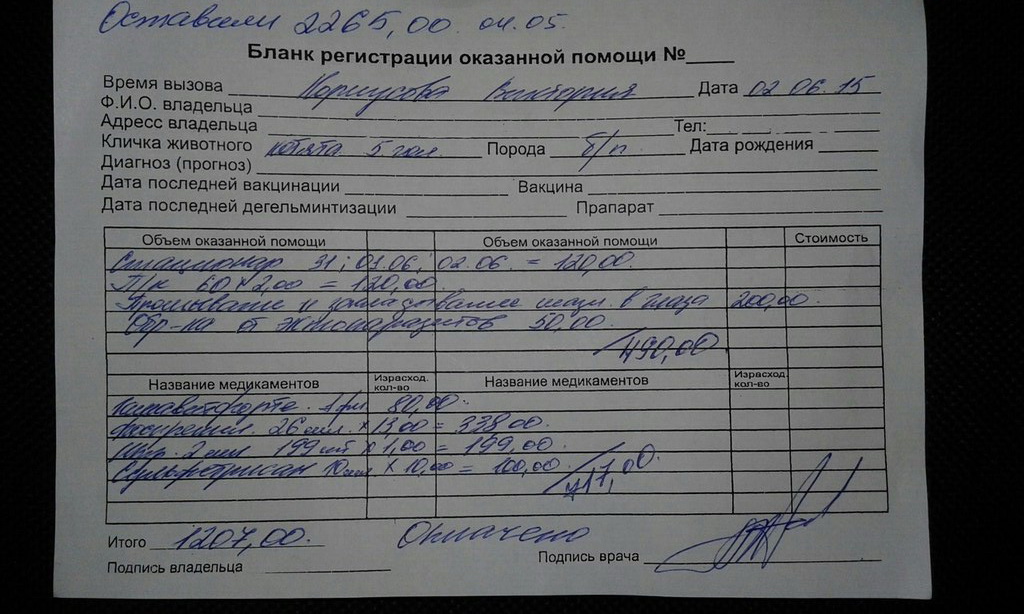 Оставили 2265,00 04.05.
Бланк регистрации оказанной помощи №____
Время вызова Виктория Дата 02 06.15
Ф.И.О. владельца
Адресс владельца Тел:
Кличка животного котята 5 гол. Порода б/п Дата рождения
Диагноз (прогноз)
Дата последней вакцинации Вакцина
Дата последней дегельминтизации Препарат
Объем оказанной помощи Объем оказанной помощи Стоимость
Стационар 31; 01.06; 02.06. = 120,00.
П/к 60 × 2,00 = 120,00.
Промывание и в глаза 200,00.
Обр-ка от эктопаразитов 50,00.
490,00
Название медикаментов Израсход. кол-во Название медикаментов Израсход. кол-во
1 фл. 80,00.
26 мл. × 13,00 = 338,00.
2 мл 199 шт × 1,00 = 199,00.
10 × 10,00 = 100,00
717,00.
Итого 1207,00. Оплачено
Подпись врача
Подпись владельца